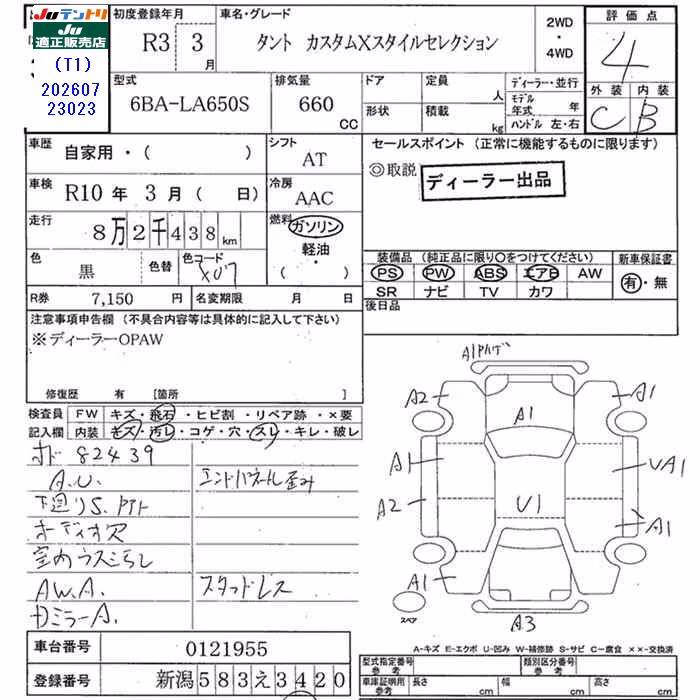 Juテントリ
Ju適正販売店
(T1)
202607
23023
初度登録年月
R3 3月
車名・グレード
タント カスタムXスタイルセレクション
2WD
・
4WD
評価点
4
型式
6BA-LA650S
排気量
660 CC
ドア
定員 人
形状
積載 kg
ディーラー・並行
モデル年式 年
ハンドル 左・右
外装 内装
C B
車歴
自家用・( )
シフト
AT
車検
R10 年 3 月 ( 日)
冷房
AAC
走行
8万2千438km
燃料
ガソリン
軽油・
( )
色
黒
色替
色コード
X07
R券 7,150 円
名変期限 月 日
セールスポイント (正常に機能するものに限ります)
◎取説
ディーラー出品
装備品 (純正品に限り○をつけてください)
PS PW ABS エアB AW
SR ナビ TV カワ
新車保証書
有・無
後日品
注意事項申告欄 (不具合内容等は具体的に記入して下さい)
※ディーラーOPAW
修復歴 有 [箇所 ]
検査員記入欄
FW キズ・飛石・ヒビ割・リペア跡・×要
内装 キズ・汚レ・コゲ・穴・スレ・キレ・破レ
オド 82439
A.U.
エンドパネル歪み
下廻りS.
オーディオ穴
室内ウスヨゴレ
AW.A.
スタッドレス
DミラーA.
A1
A2
A1
A1
A1
UA1
A2
U1
A1
A1
A3
スペア
A-キズ E-エクボ U-凹み W-補修跡 S-サビ C-腐食 ××-交換済
車台番号 0121955
登録番号 新潟583え3420
型式指定番号 参考
類別区分番号 参考
車庫証明用 参考
長さ cm 幅 cm 高さ cm